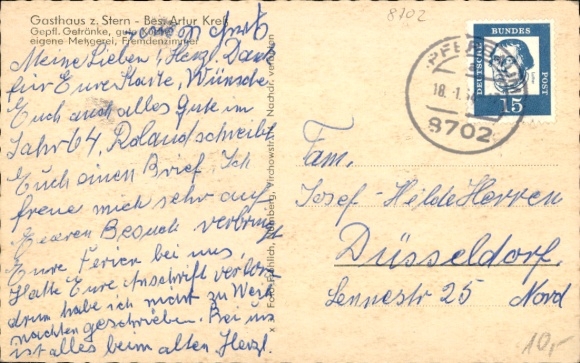 8702
Gasthaus z. Stern - Bes. Artur Kreß
Gepfl. Getränke, gute
eigene Metzgerei, Fremdenzimmer
Meine Lieben! Herzl. Dank
für Eure Karte, Wünsche
Euch auch alles Gute im
Jahr 64, Roland schreibt
Euch einen Brief. Ich
freue mich sehr auf
Eueren Besuch verbringt
Eure Ferien bei uns
Hatte Eure Anschrift verlor
drum habe ich nicht zu Weih
nachten geschrieben. Bei uns
ist alles beim alten Herzl.
Foto Fröhlich, Nürnberg, Virchowstr. Nachdr. verboten
DEUTSCHE BUNDES POST
15
18.-1.
8702
Fam.
Josef-Hilde Herren
Düsseldorf,
Lennestr 25 Nord
10,-